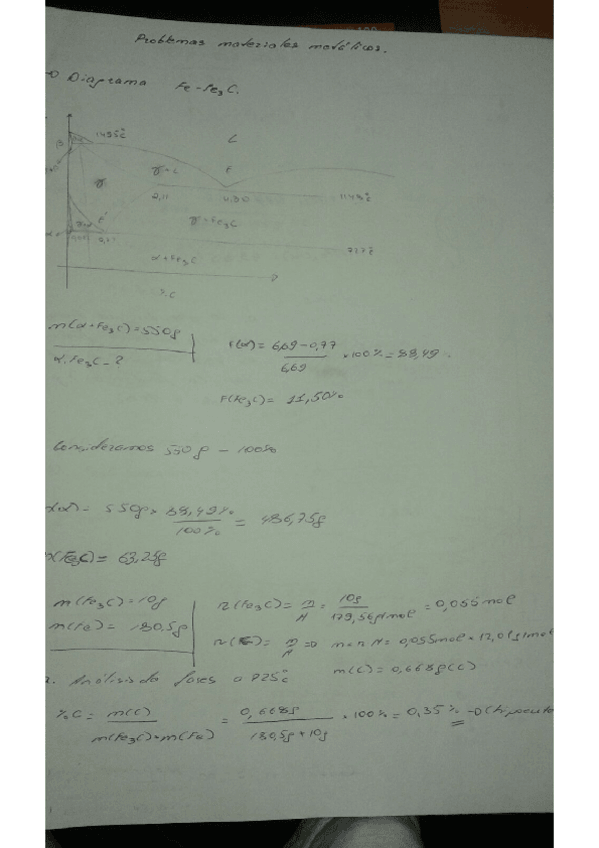 Problemas materiales metálicos.
Diagrama Fe-Fe3C.
1495°C
L
γ
γ+L
E
2,11
4,30
1148°C
γ+Fe3C
727°C
α+Fe3C
%C
m(α+Fe3C)=550g
α, Fe3C-?
F(α) = 6,69-0,77 / 6,69 × 100% = 88,49
F(Fe3C)= 11,50%
Consideramos 550g - 100%
X(α)= 550g × 88,49% / 100% = 486,75g
X(Fe3C)= 63,25g
m(Fe3C)=10g
m(Fe)= 180,5g
n(Fe3C)= m/M = 10g / 179,56g/mol = 0,055mol
n(C)= m/M => m=n·M= 0,055mol × 12,01g/mol
m(C)= 0,668g(C)
2. Análisis de fases a 725°C
%C = m(C) / m(Fe3C)+m(Fe) = 0,668g / 180,5g+10g × 100% = 0,35%